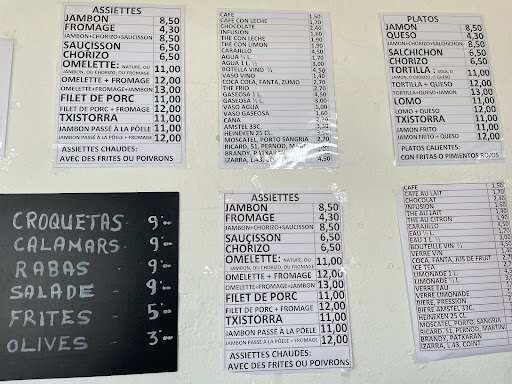 ASSIETTES
JAMBON 8,50
FROMAGE 4,30
JAMBON+CHORIZO+SAUCISSON 8,50
SAUÇISSON 6,50
CHORIZO 6,50
OMELETTE: NATURE, OU 11,00
JAMBON, OU CHORIZO, OU FROMAGE
OMELETTE + FROMAGE 12,00
OMELETTE+FROMAGE+JAMBON 13,00
FILET DE PORC 11,00
FILET DE PORC + FROMAGE 12,00
TXISTORRA 11,00
JAMBON PASSÉ À LA PÖELE 11,00
JAMBON PASSÉ À LA PÖELE + FROMAGE 12,00
ASSIETTES CHAUDES:
AVEC DES FRITES OU POIVRONS
CAFE 1,50
CAFE CON LECHE 1,70
CHOCOLATE
INFUSION
THE CON LECHE
THE CON LIMON
CARAJILLO 4,50
AGUA ½ L.
AGUA 1 L.
BOTELLA VINO ¾
VASO VINO
COCA COLA, FANTA, ZUMO
THE FRIO
GASEOSA 1 L.
GASEOSA ½ L.
VASO AGUA
VASO GASEOSA
CAÑA
AMSTEL 33C.
HEINEKEN 25 CL.
MOSCATEL, PORTO SANGRIA
RICARD, 51, PERNOD, MARI
BRANDY, PATXARAN
IZARRA, L.43, COINT 4,50
PLATOS
JAMON 8,50
QUESO 4,30
JAMON+CHORIZO+SALCHICHON 8,50
SALCHICHON 6,50
CHORIZO 6,50
TORTILLA : SOLA, O 11,00
JAMON, O CHORIZO, O QUESO
TORTILLA + QUESO 12,00
TORTILLA+QUESO+JAMON 13,00
LOMO 11,00
LOMO + QUESO 12,00
TXISTORRA 11,00
JAMON FRITO 11,00
JAMON FRITO + QUESO 12,00
PLATOS CALIENTES:
CON FRITAS O PIMIENTOS ROJOS
CROQUETAS. 9'00
CALAMARS. 9'00
RABAS - 9'00
SALADE - 9'00
FRITES - 5'00
OLIVES - 3'00
ASSIETTES
JAMBON 8,50
FROMAGE 4,30
JAMBON+CHORIZO+SAUCISSON 8,50
SAUÇISSON 6,50
CHORIZO 6,50
OMELETTE: NATURE, OU 11,00
JAMBON, OU CHORIZO, OU FROMAGE
OMELETTE + FROMAGE 12,00
OMELETTE+FROMAGE+JAMBON 13,00
FILET DE PORC 11,00
FILET DE PORC + FROMAGE 12,00
TXISTORRA 11,00
JAMBON PASSÉ À LA PÖELE 11,00
JAMBON PASSÉ À LA PÖELE + FROMAGE 12,00
ASSIETTES CHAUDES:
AVEC DES FRITES OU POIVRONS
CAFE 1,50
CAFE AU LAIT 1,70
CHOCOLAT
INFUSION
THE AU LAIT
THE AU CITRON
CARAJILLO 4,50
EAU ½ L.
EAU 1 L.
BOUTEILLE VIN ¾
VERRE VIN
COCA, FANTA, JUS DE FRUIT
ICE TEA
LIMONADE 1 L.
LIMONADE ½ L.
VERRE EAU
VERRE LIMONADE
BIERE, PRESSION
BIERE AMSTEL 33C.
HEINEKEN 25 CL
MOSCATEL, PORTO, SANGRIA
RICARD, 51, PERNOD, MARTINI
BRANDY, PATXARAN
IZARRA, L.43, COINT